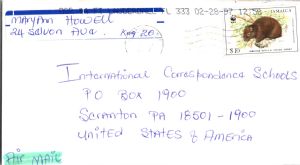 333 02-28-97 12:58
Maryann Howell
24 Salvon Ave. Kng 20.
JAMAICA
$10
International Correspondence Schools
PO Box 1900
Scranton PA 18501-1900
United States of America
Air Mail